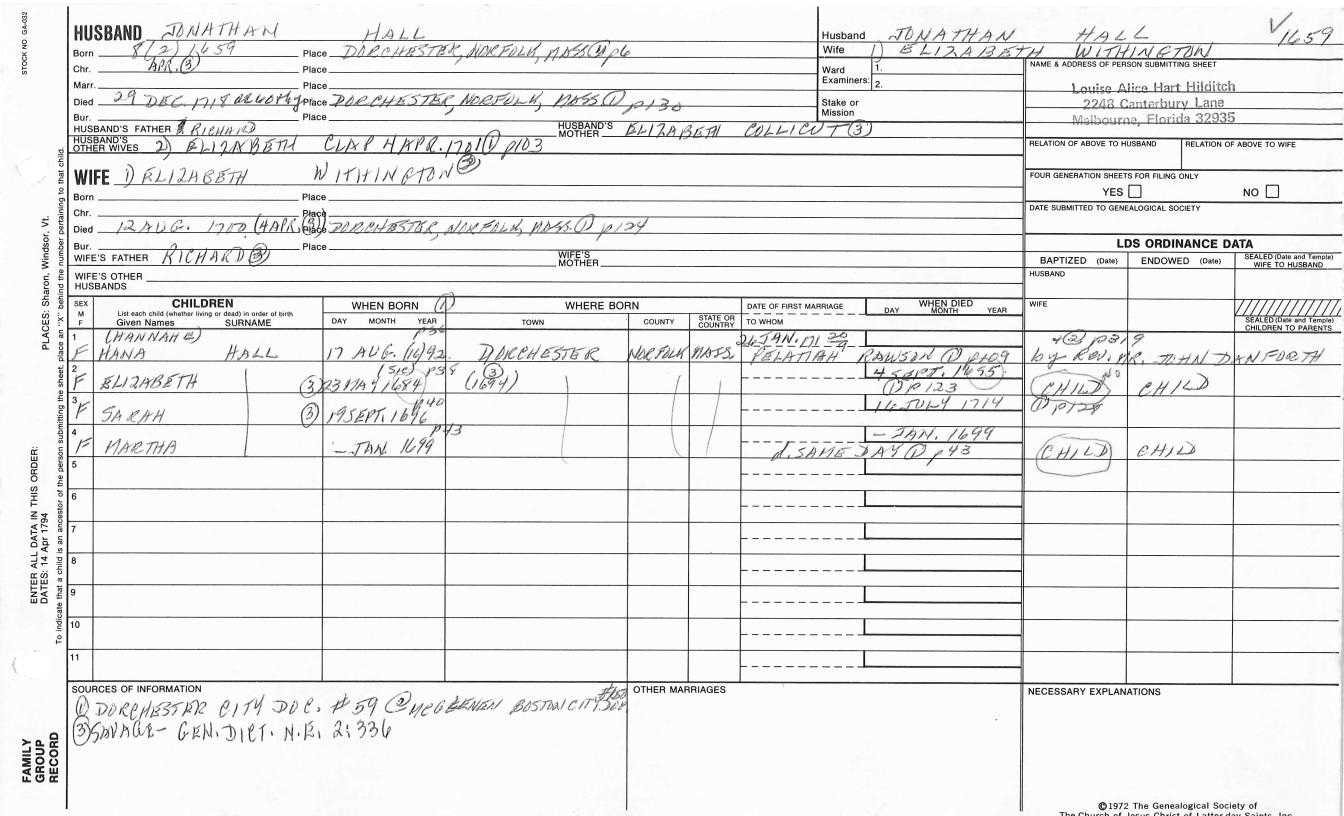 STOCK NO. GA-032
HUSBAND JONATHAN HALL
Born 8(2)1659 Place DORCHESTER, NORFOLK, MASS ① p6
Chr. APR. ③ Place
Marr. Place
Died 29 DEC. 1718 Place DORCHESTER, NORFOLK, MASS ① p130
Bur. Place
HUSBAND'S FATHER RICHARD HUSBAND'S MOTHER ELIZABETH COLLICUT ③
HUSBAND'S OTHER WIVES 2) ELIZABETH CLAP 4 APR. 1701 ① p103
WIFE 1) ELIZABETH WITHINGTON ③
Born Place
Chr. Place
Died 12 AUG. 1700 (4 APR. ③) Place DORCHESTER, NORFOLK, MASS. ① p124
Bur. Place
WIFE'S FATHER RICHARD ③ WIFE'S MOTHER
WIFE'S OTHER HUSBANDS
Husband JONATHAN HALL 1659
Wife 1) ELIZABETH WITHINGTON
Ward Examiners: 1.
2.
Stake or Mission
NAME & ADDRESS OF PERSON SUBMITTING SHEET
Louise Alice Hart Hilditch
2248 Canterbury Lane
Melbourne, Florida 32935
RELATION OF ABOVE TO HUSBAND RELATION OF ABOVE TO WIFE
FOUR GENERATION SHEETS FOR FILING ONLY
YES NO
DATE SUBMITTED TO GENEALOGICAL SOCIETY
LDS ORDINANCE DATA
BAPTIZED (Date) ENDOWED (Date) SEALED (Date and Temple) WIFE TO HUSBAND
HUSBAND
WIFE
SEALED (Date and Temple) CHILDREN TO PARENTS
SEX M F
CHILDREN
List each child (whether living or dead) in order of birth
Given Names SURNAME
WHEN BORN ①
DAY MONTH YEAR
WHERE BORN
TOWN COUNTY STATE OR COUNTRY
DATE OF FIRST MARRIAGE
TO WHOM
WHEN DIED
DAY MONTH YEAR
1 (HANNAH ②) p36 26 JAN. 4② p319
F HANA HALL 17 AUG. (16)92 DORCHESTER NORFOLK MASS. PELATIAH RAWSON ① p109 by REV. MR. JOHN DANFORTH
2 (SIC) p38 ③ 4 SEPT. 1695
F ELIZABETH ③ 23 MAY 1684 (1694) ① p123 CHILD CHILD
3 p40 16 JULY 1714 ① p128
F SARAH ③ 19 SEPT. 1696
4 p43 - JAN. 1699
F MARTHA - JAN. 1699 d. SAME DAY ① p43 CHILD CHILD
5
6
7
8
9
10
11
SOURCES OF INFORMATION
① DORCHESTER CITY DOC. #59 ② BOSTON CITY
③ SAVAGE - GEN. DICT. N.E. 2:336
OTHER MARRIAGES
NECESSARY EXPLANATIONS
©1972 The Genealogical Society of
The Church of Jesus Christ of Latter-day Saints, Inc.
PLACES: Sharon, Windsor, Vt.
ENTER ALL DATA IN THIS ORDER:
DATES: 14 Apr 1794
To indicate that a child is an ancestor of the person submitting the sheet, place an "X" behind the number pertaining to that child.
FAMILY GROUP RECORD